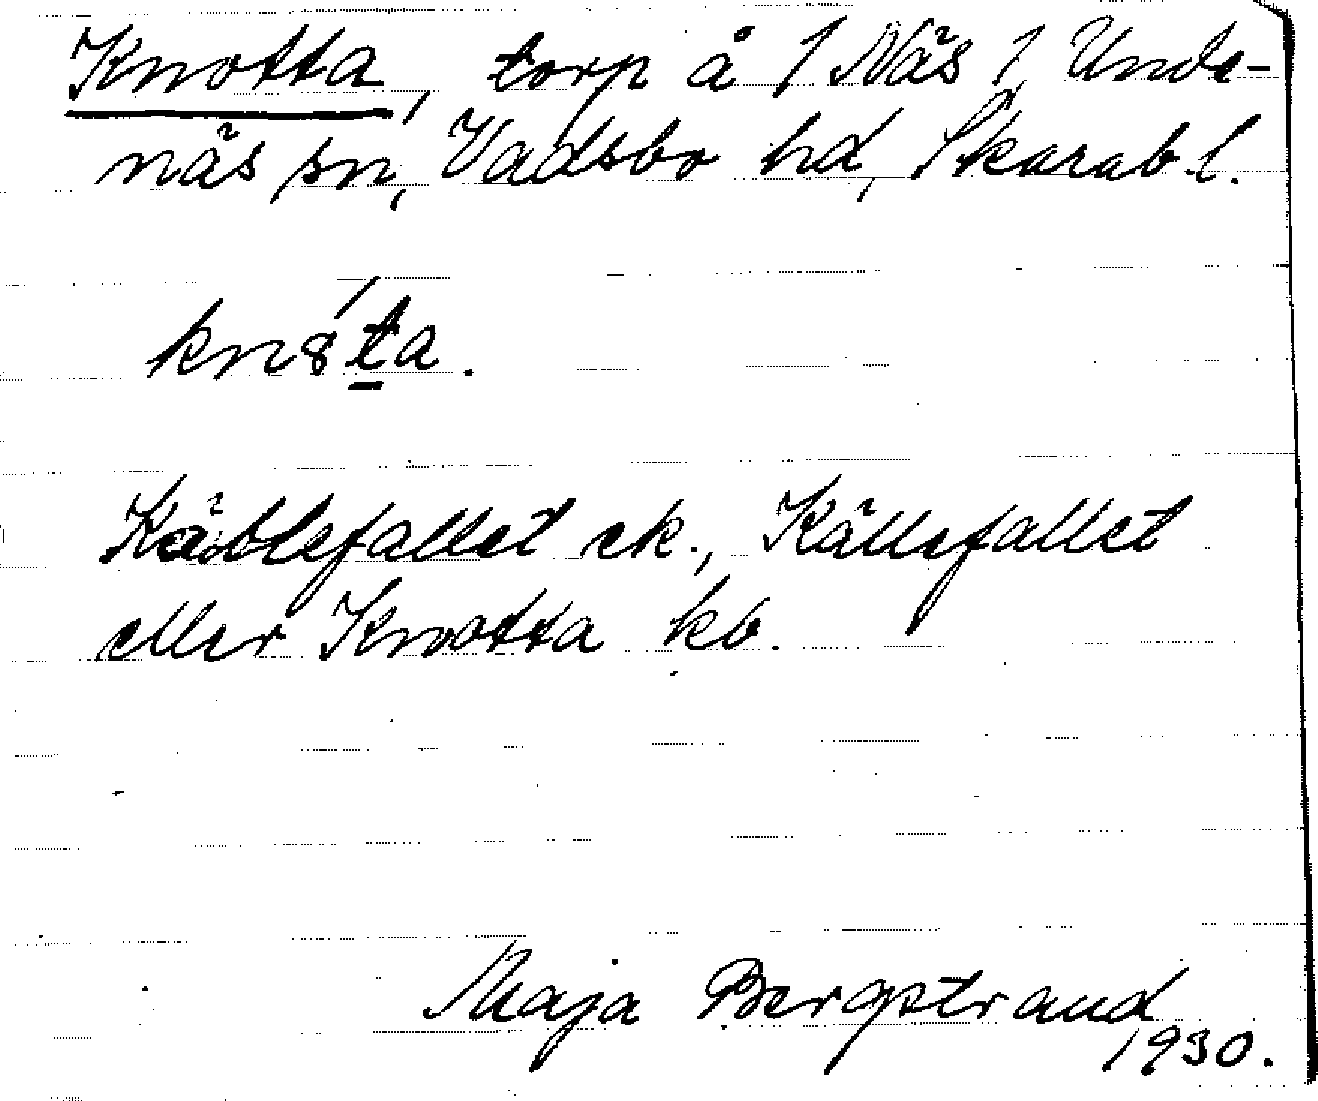 Knotta, torp å 1 Näs 1, Unde-
näs sn, Vadsbo hd, Skarab.l.
kn8´ta.
Käblefallet ek., Källefallet
eller Knotta kb.
Maja Bergstrand
1930.